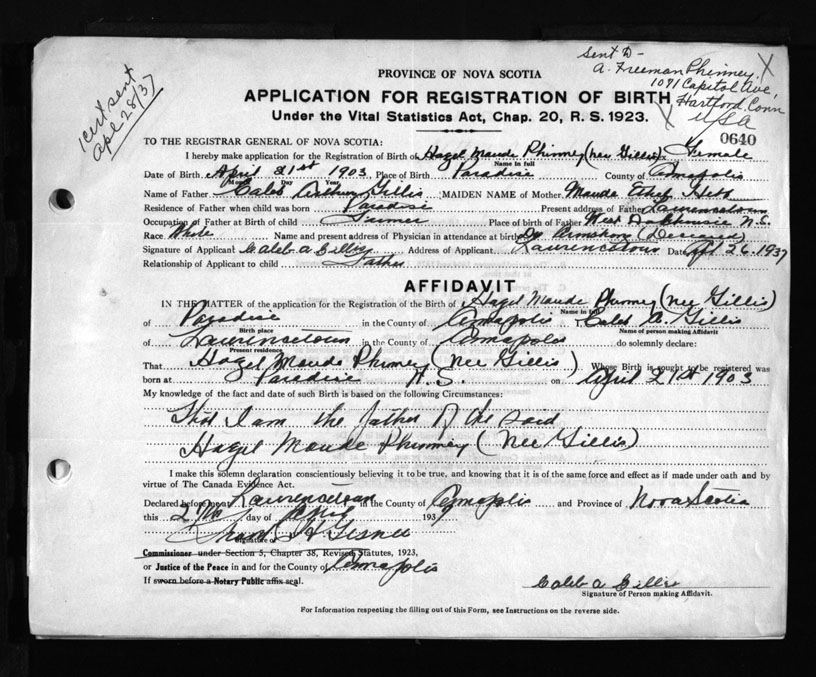 sent to -
A. Freeman Phinney X
1091 Capitol Ave,
Hartford, Conn
USA
1 cert sent
Apl 28/37
PROVINCE OF NOVA SCOTIA
APPLICATION FOR REGISTRATION OF BIRTH X
Under the Vital Statistics Act, Chap. 20, R. S. 1923.
0640
TO THE REGISTRAR GENERAL OF NOVA SCOTIA:
I hereby make application for the Registration of Birth of Hazel Maude Phinney (nee Gillis) Female
Name in full
Date of Birth April 21st 1903 Place of Birth Paradise County of Annapolis
Month Day Year
Name of Father Caleb Arthur Gillis MAIDEN NAME of Mother Maude Ethel
Residence of Father when child was born Paradise Present address of Father Lawrencetown
Occupation of Father at Birth of child Farmer Place of birth of Father West N.S.
Race White Name and present address of Physician in attendance at birth Dr (Deceased)
Signature of Applicant Caleb A Gillis Address of Applicant Lawrencetown Date Apl 26 1937
Relationship of Applicant to child Father
AFFIDAVIT
IN THE MATTER of the application for the Registration of the Birth of Hazel Maude Phinney (nee Gillis)
Name in full
of Paradise in the County of Annapolis I, Caleb A. Gillis
Birth place Name of person making Affidavit
of Lawrencetown in the County of Annapolis do solemnly declare:
Present residence
That Hazel Maude Phinney (nee Gillis) Whose Birth is sought to be registered was
born at Paradise N.S. on April 21st 1903
My knowledge of the fact and date of such Birth is based on the following Circumstances:
That I am the father of the said
Hazel Maude Phinney (nee Gillis)
I make this solemn declaration conscientiously believing it to be true, and knowing that it is of the same force and effect as if made under oath and by
virtue of The Canada Evidence Act.
Declared before me at Lawrencetown in the County of Annapolis and Province of Nova Scotia
this day of April 1937
Signature of
Commissioner under Section 5, Chapter 38, Revised Statutes, 1923,
or Justice of the Peace in and for the County of Annapolis
If sworn before a Notary Public affix seal.
Caleb A Gillis
Signature of Person making Affidavit.
For Information respecting the filling out of this Form, see Instructions on the reverse side.